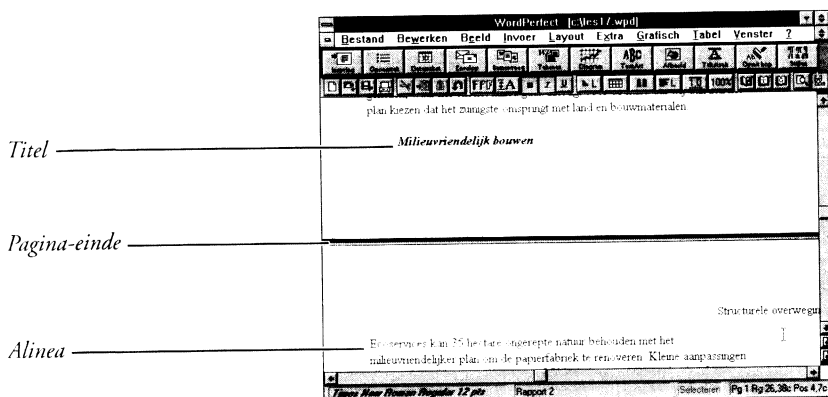 WordPerfect [c:\les17.wpd]
Bestand Bewerken Beeld Invoer Layout Extra Grafisch Tabel Venster ?
100%
plan kiezen dat het zuinigste omspringt met land en bouwmaterialen.
Titel
Milieuvriendelijk bouwen
Pagina-einde
Structurele overwegin
Alinea
Eco-services kan 36 hectare ongerepte natuur behouden met het
milieuvriendelijker plan om de papierfabriek te renoveren. Kleine aanpassingen
Times New Roman Regular 12 pts Rapport 2 Selecteren Pg 1 Rg 26,38c Pos 4,7c